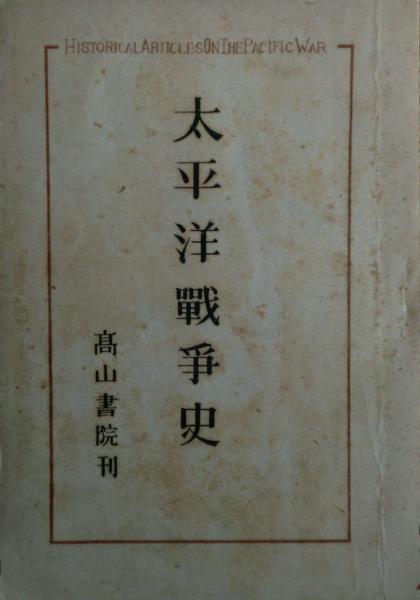 HISTORICAL ARTICLES ON THE PACIFIC WAR
太平洋戰爭史
髙山書院刊